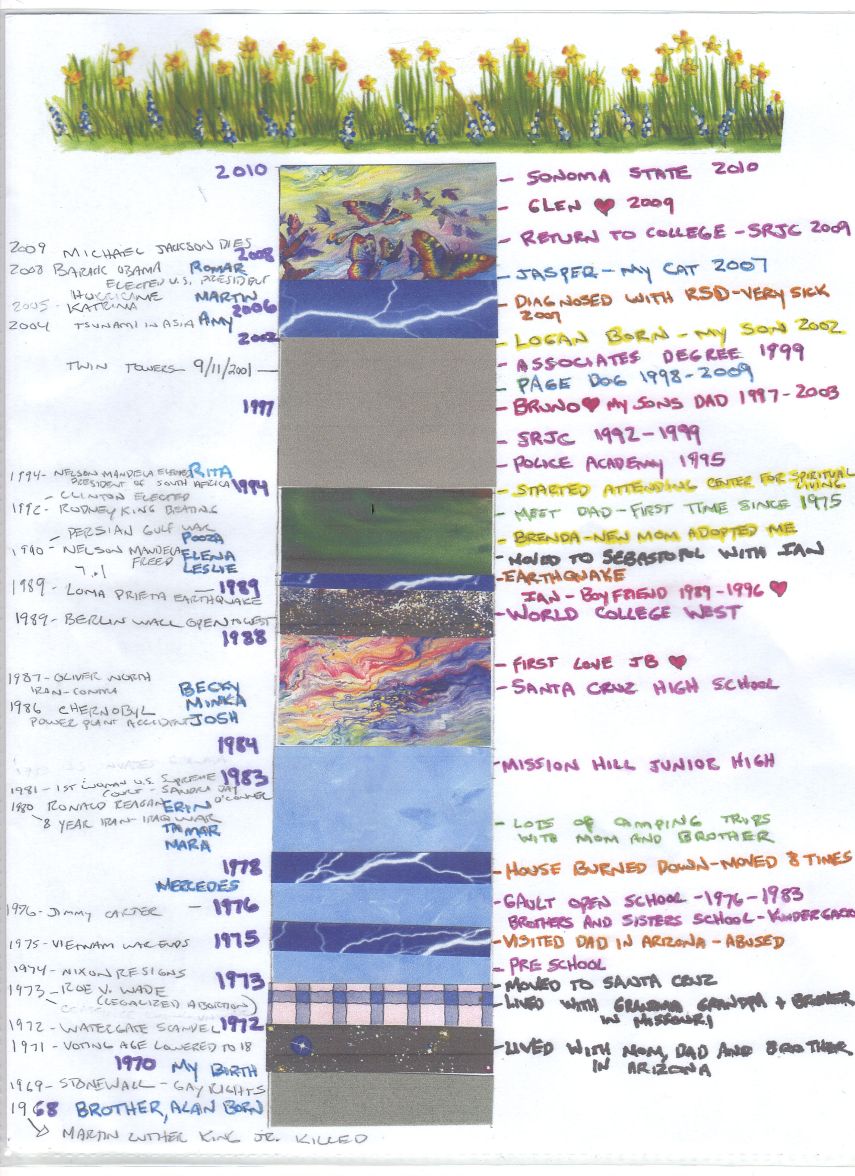 2010
- SONOMA STATE 2010
- GLEN ♥ 2009
- RETURN TO COLLEGE - SRJC 2009
2009 MICHAEL JACKSON DIES
2008
2008 BARACK OBAMA ROMAR
ELECTED U.S. PRESIDENT
- JASPER - MY CAT 2007
HURRICANE MARTIN
2005 - KATRINA 2006
2004 TSUNAMI IN ASIA AMY
2002
- DIAGNOSED WITH RSD - VERY SICK
- LOGAN BORN - MY SON 2002
- ASSOCIATES DEGREE 1999
TWIN TOWERS 9/11/2001 -
- PAGE DOG 1998-2009
1997
- BRUNO ♥ MY SONS DAD 1997-2003
- SRJC 1992-1999
- POLICE ACADEMY 1995
1994 - NELSON MANDELA ELECTED RITA
PRESIDENT OF SOUTH AFRICA 1994
- STARTED ATTENDING CENTER FOR SPIRITUAL
LIVING
- CLINTON ELECTED
1992 - RODNEY KING BEATING
- MEET DAD - FIRST TIME SINCE 1975
- PERSIAN GULF WAR
POOZA
- BRENDA - NEW MOM ADOPTED ME
1990 - NELSON MANDELA ELENA
FREED LESLIE
- MOVED TO SEBASTOPOL WITH IAN
7.1
- EARTHQUAKE
1989 - LOMA PRIETA EARTHQUAKE - 1989
IAN - BOYFRIEND 1989-1996 ♥
- WORLD COLLEGE WEST
1989 - BERLIN WALL OPEN TO WEST
1988
- FIRST LOVE JB ♥
1987 - OLIVER NORTH
IRAN-CONTRA BECKY
- SANTA CRUZ HIGH SCHOOL
MINKA
1986 CHERNOBYL
POWER PLANT ACCIDENT JOSH
1984
- MISSION HILL JUNIOR HIGH
1983
1981 - 1ST WOMAN U.S. SUPREME
COURT - SANDRA DAY
O'CONNER
1980 RONALD REAGAN ERIN
- 8 YEAR IRAN-IRAQ WAR
TAMAR
MARA
- LOTS OF CAMPING TRIPS
WITH MOM AND BROTHER
1978
- HOUSE BURNED DOWN - MOVED 8 TIMES
MERCEDES
1976 - JIMMY CARTER - 1976
- GAULT OPEN SCHOOL - 1976-1983
BROTHERS AND SISTERS SCHOOL - KINDERGARD
1975 - VIETNAM WAR ENDS 1975
- VISITED DAD IN ARIZONA - ABUSED
- PRE SCHOOL
1974 - NIXON RESIGNS
1973
- MOVED TO SANTA CRUZ
1973 - ROE V. WADE
(LEGALIZED ABORTION)
- LIVED WITH GRANDMA GRANDPA + BROTHER
IN MISSOURI
1972 - WATERGATE SCANDEL 1972
1971 - VOTING AGE LOWERED TO 18
- LIVED WITH MOM, DAD AND BROTHER
IN ARIZONA
1970 MY BIRTH
1969 - STONEWALL - GAY RIGHTS
1968 BROTHER, ALAN BORN
MARTIN LUTHER KING JR. KILLED